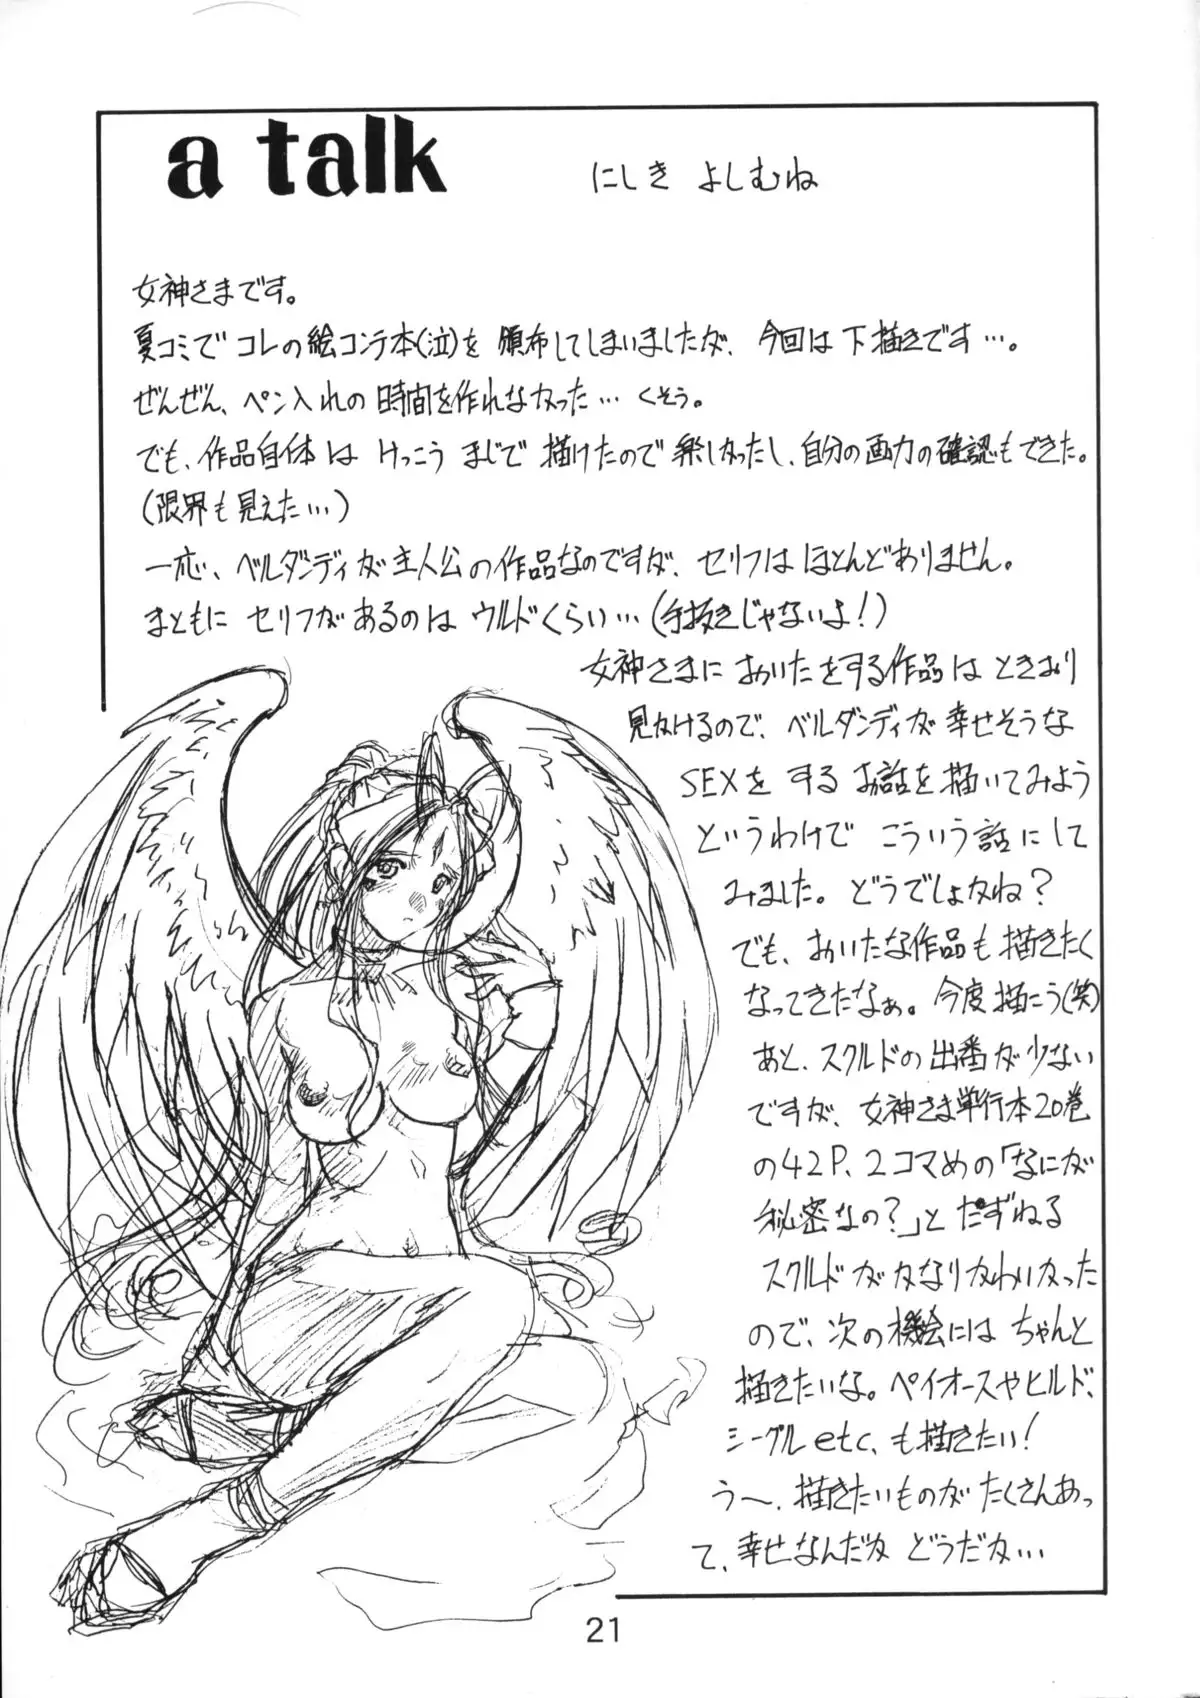 a talk
にしき よしむね
女神さまです。
夏コミで コレの絵コンテ本(泣)を 頒布してしまいましたが、今回は下描きです…。
ぜんぜん、ペン入れの時間を作れなかった…くそう。
でも、作品自体は けっこう まじで 描けたので楽しかったし、自分の画力の確認もできた。
(限界も見えた…)
一応、ベルダンディが主人公の作品なのですが、セリフは ほとんどありません。
まともに セリフがあるのは ウルドくらい…(手抜きじゃないよ!)
女神さまに おいたをする作品は ときおり
見かけるので、ベルダンディが幸せそうな
SEXを する お話を描いてみよう
というわけで こういう話にして
みました。どうでしょかね?
でも、おいたな作品も描きたく
なってきたなぁ。今度描こう(笑)
あと、スクルドの出番が少ない
ですが、女神さま単行本20巻
の42P、2コマめの「なにが
秘密なの?」と たずねる
スクルドが かなりかわいかった
ので、次の機会には ちゃんと
描きたいな。ペイオースやヒルド、
シーグルetc、も描きたい!
う〜、描きたいものが たくさんあっ
て、幸せなんだか どうだか…
21